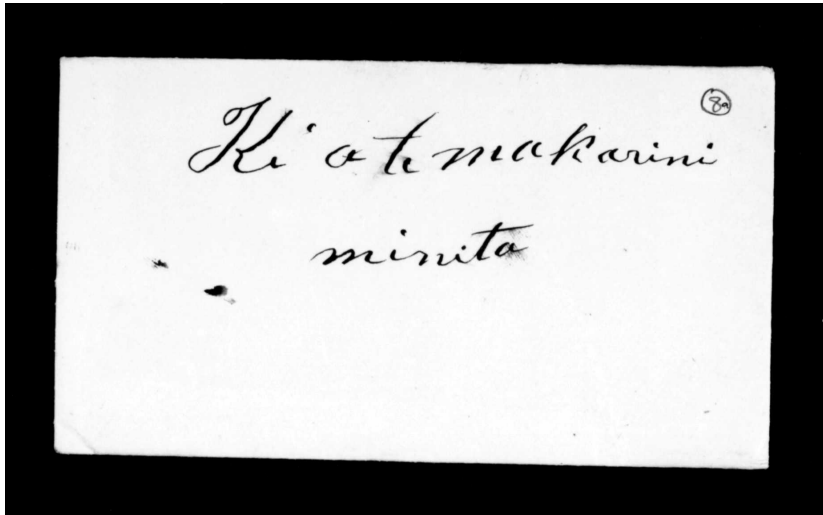 8a
Ki a te makarini
minita